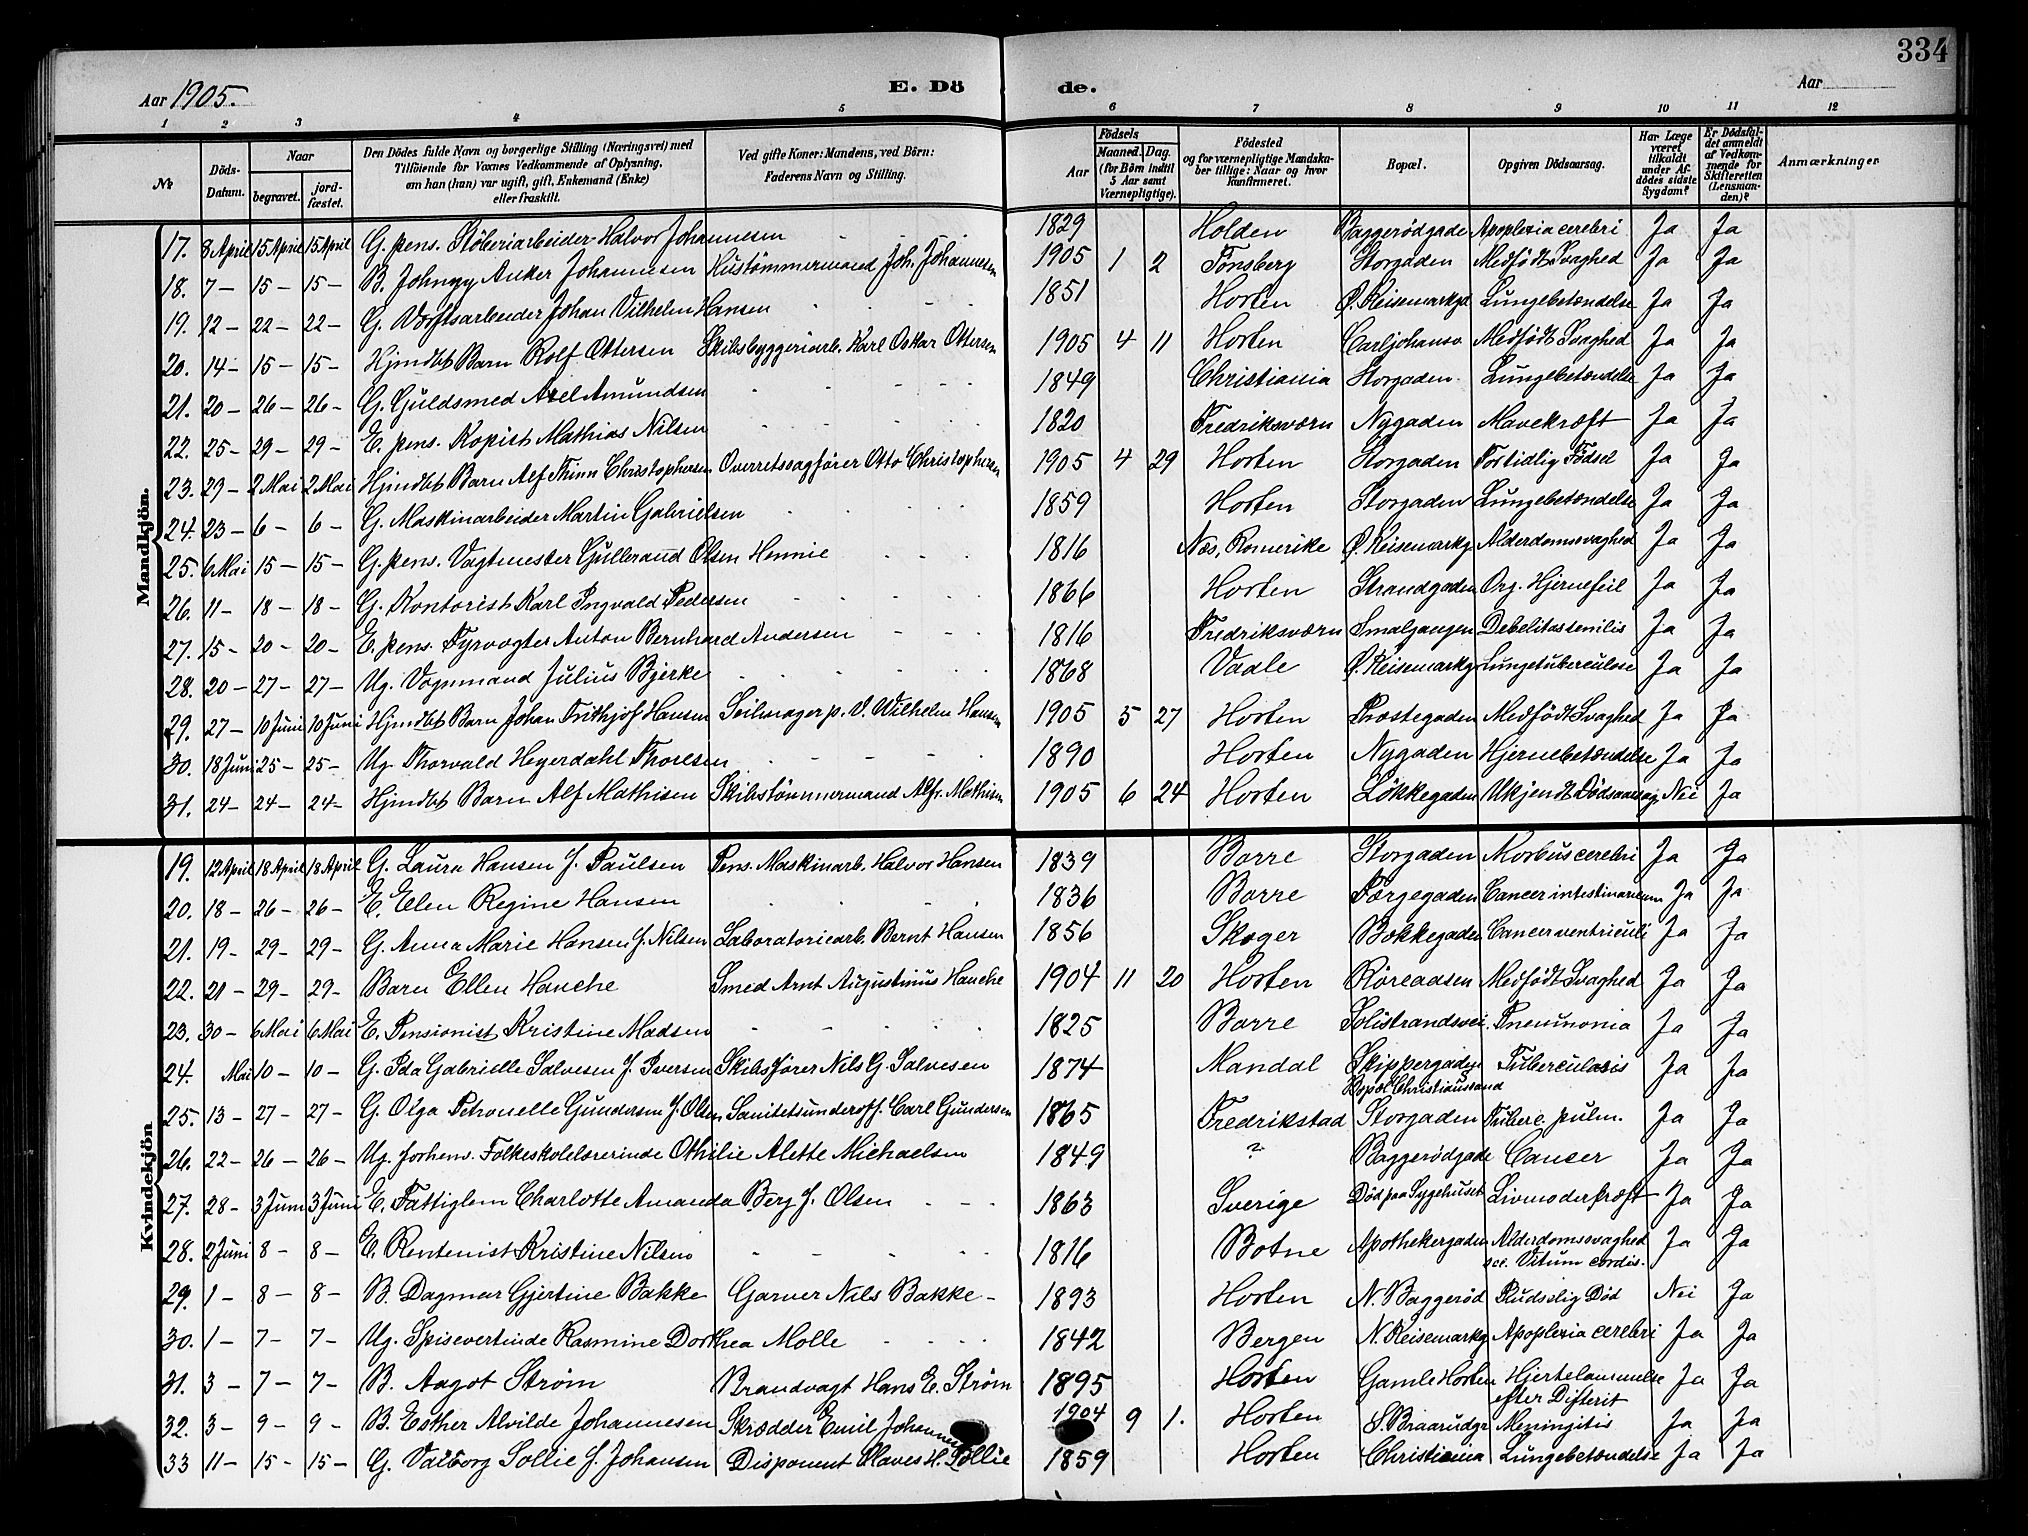 334
Aar 1905.
E. Dö de.
Aar
1 2 3 4 5 6 7 8 9 10 11 12
№ Döds-Datum. Naar begravet. jord-fæstet. Den Dödes fulde Navn og borgerlige Stilling (Næringsvei) med Tilföiende for Voxnes Vedkommende af Oplysning, om han (hun) var ugift, gift, Enkemand (Enke) eller fraskilt. Ved gifte Koner: Mandens, ved Börn: Faderens Navn og Stilling. Födsels Aar Maaned. Dag. (for Börn indtil 5 Aar samt Værnepligtige). Födested og for værnepligtige Mandskaber tillige: Naar og hvor Konfirmeret. Bopæl. Opgiven Dödsaarsag. Har Læge været tilkaldt under Afdödes sidste Sygdom? Er Dödsfaldet anmeldt af Vedkommende for Skifteretten (Lensmanden)? Anmærkninger
Mandkjön.
17. 8 April 15 April 15 April G. pens. Støberiarbeider Halvor Johannesen - - - 1829 Holden Baggerödgade Apoplexia cerebri Ja Ja
18. 7 - 15 - 15 - B. Johnny Anker Johannesen Hustömmermand Joh. Johannesen 1905 1 2 Tönsberg Storgaden Medfödt Svaghed Ja Ja
19. 12 - 22 - 22 - G. Værftsarbeider Johan Vilhelm Hansen - - - 1851 Horten Ø. Keisemarkgd Lungebetændelse Ja Ja
20. 14 - 15 - 15 - Hjmdbt Barn Rolf Ottersen Skibsbyggeriarb. Karl Oskar Ottersen 1905 4 11 Horten Carljohansv Medfödt Svaghed Ja Ja
21. 20 - 26 - 26 - G. Guldsmed Axel Amundsen - - - 1849 Christiania Storgaden Lungebetændelse Ja Ja
22. 25 - 29 - 29 - E. pens. Kopist Mathias Nilsen - - - 1820 Fredriksværn Nygaden Mavekræft Ja Ja
23. 29 - 2 Mai 2 Mai Hjmdbt Barn Alf Thinn Christophersen Overretssagförer Otto Christophersen 1905 4 29 Horten Storgaden Fortidlig Födsel Ja Ja
24. 23 - 6 - 6 - G. Maskinarbeider Martin Gabrielsen - - - 1859 Horten Storgaden Lungebetændelse Ja Ja
25. 6 Mai 15 - 15 - G. pens. Vagtmester Gulbrand Olsen Hennie - - - 1816 Næs, Romerike Ø. Keisemarkg Alderdomssvaghed Ja Ja
26. 11 - 18 - 18 - G. Kontorist Karl Ingvald Pedersen - - - 1866 Horten Strandgaden Org. Hjernefeil Ja Ja
27. 15 - 20 - 20 - E. pens. Fyrvogter Anton Bernhard Andersen - - - 1816 Fredriksværn Smalgangen Debelitas senilis Ja Ja
28. 20 - 27 - 27 - Ug. Vognmand Julius Bjerke - - - 1868 Vaale Ø. Keisemarkg Lungetuberculose Ja Ja
29. 27 - 10 Juni 10 Juni Hjmdbt Barn Johan Frithjof Hansen Seilmager p. V. Wilhelm Hansen 1905 5 27 Horten Præstegaden Medfödt Svaghed Ja Ja
30. 18 Juni 25 - 25 - Ug. Thorvald Heyerdahl Thorsen - - - 1890 Horten Nygaden Hjernebetændelse Ja Ja
31. 24 - 24 - 24 - Hjmdbt Barn Alf Mathisen Skibstömmermand Alfr. Mathisen 1905 6 24 Horten Lökkegaden Ukjendt Dödsaarsag Nei Ja
Kvindekjön
19. 12 April 18 April 18 April G. Laura Hansen f. Paulsen Pens. Maskinarb. Halvor Hansen 1839 Borre Storgaden Morbus cerebri Ja Ja
20. 18 - 26 - 26 - E. Ellen Regine Hansen - - - 1836 Borre Færgegaden Cancer intestinarum Ja Ja
21. 19 - 29 - 29 - G. Anna Marie Hansen f. Nilsen Laboratoriearb. Bernt Hansen 1856 Skoger Bakkegaden Cancer ventriculi Ja Ja
22. 21 - 29 - 29 - Barn Ellen Hanche Smed Arnt Augustinus Hanche 1904 11 20 Horten Röreaasen Medfödt Svaghed Ja Ja
23. 30 - 6 Mai 6 Mai E. Pensionist Kristine Madsen - - - 1825 Borre Solistrandsvei. Pneumonia Ja Ja
24. Mai 10 - 10 - G. Ida Gabrielle Salvesen f. Iversen Skibsförer Nils G. Salvesen 1874 Mandal Skippergaden Bopæl Christianssand Tuberculosis Ja Ja
25. 13 - 27 - 27 - G. Olga Petronelle Gundersen f. Olsen Sanitetsunderoff. Carl Gundersen 1865 Fredrikstad Storgaden Tuberc. pulm. Ja Ja
26. 22 - 26 - 26 - Ug. forhens. Folkeskolelærerinde Othilie Alette Michaelsen 1849 ? Baggerödgade Cancer Ja Ja
27. 28 - 3 Juni 3 Juni E. Fattiglem Charlotte Amanda Berg f. Olsen - - - 1863 Sverige Död paa Sygehuset Livmoderkræft Ja Ja
28. 2 Juni 8 - 8 - E. Rentenist Kristine Nilsen - - - 1816 Botne Apothekergaden Alderdomssvaghed scl. Vitium cordis. Ja Ja
29. 1 - 8 - 8 - B. Dagmar Gjertine Bakke Garver Nils Bakke - 1893 Horten N. Baggeröd Pludselig Död Nei Ja
30. 1 - 7 - 7 - Ug. Spisevertinde Rasmine Dorthea Molle - - - 1842 Bergen N. Keisemarkg Apoplexia cerebri Ja Ja
31. 3 - 7 - 7 - B. Aagot Ström Brandvagt Hans E. Ström 1895 Horten Gamle Horten Hjertelammelse efter Difterit Ja Ja
32. 3 - 9 - 9 - B. Esther Alvilde Johannesen Skrædder Emil Johannesen 1904 9 1. Horten S. Braarudgt Meningitis Ja Ja
33 11 - 15 - 15 - G. Valborg Sollie f. Johansen Disponent Claves H. Sollie 1859 Horten Christiania Lungebetændelse Ja Ja